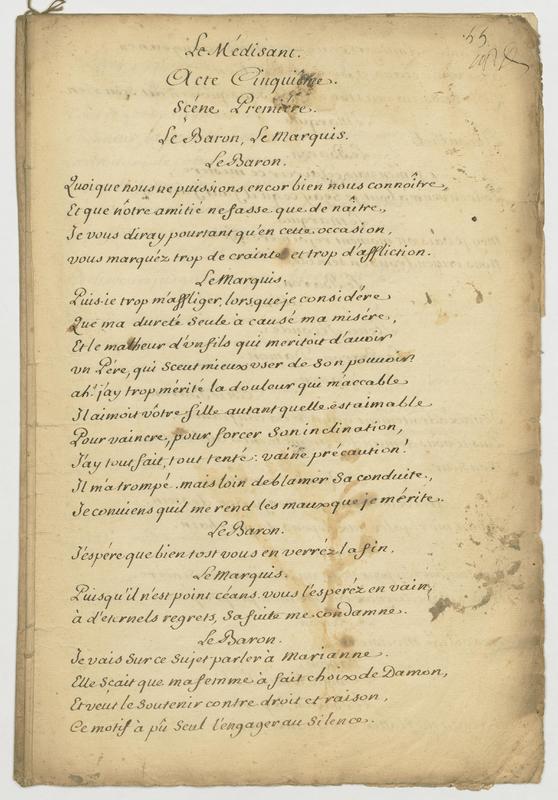 55.
Le Médisant.
Acte Cinquiéme.
Scéne Premiére.
Le Baron, Le Marquis.
Le Baron.
Quoique nous ne puissions encor bien nous connoître,
Et que nôtre amitié ne fasse que de naître,
Je vous diray pourtant qu'en cette occasion,
vous marquéz trop de crainte et trop d'affliction.
Le Marquis.
Puis-ie trop m'affliger, lorsque je considére
Que ma dureté seule à causé ma misére,
Et le malheur d'un fils qui meritoit d'avoir
vn Pére, qui sceut mieux vser de son pouvoir
ah! j'ay trop mérité la douleur qui m'accable
Il aimoit vôtre fille autant quelle est aimable
Pour vaincre, pour forcer son inclination,
J'ay tout fait, tout tenté: vaine précaution!
Il m'a trompé. mais loin de blamer sa conduite,
Je conviens quil me rend les maux que je mérite.
Le Baron.
J'espére que bien tost vous en verréz la fin.
Le Marquis.
Puisqu'il n'est point céans. vous l'esperéz en vain,
à d'éternels regrets, sa fuite me condamne.
Le Baron.
Je vais sur ce sujet parler à Marianne.
Elle sçait que ma femme à fait choix de Damon,
Et veut le soutenir contre droit et raison,
Ce motif à pû seul l'engager au silence.